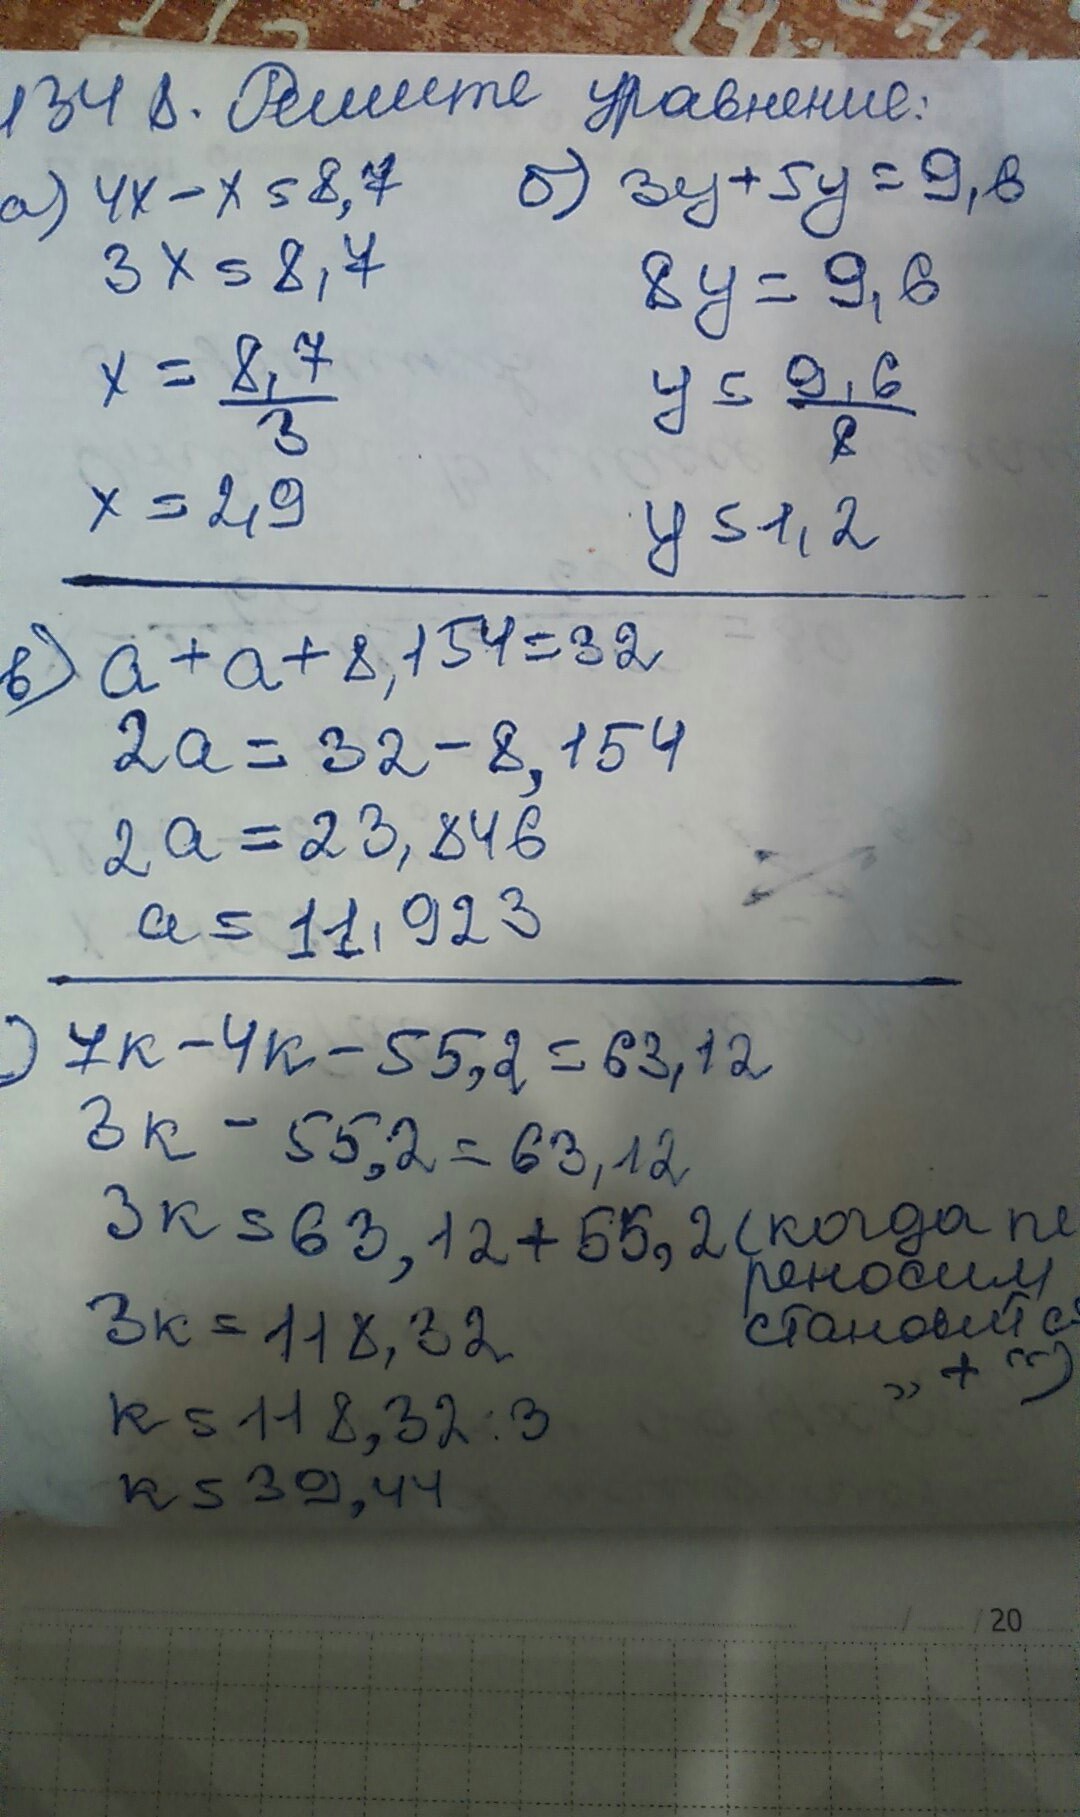 1348. Решите уравнение:
а) 4x-x=8,7
3x=8,7
x = 8,7/3
x = 2,9
б) 3y+5y=9,6
8y = 9,6
y = 9,6/8
y = 1,2
в) a+a+8,154=32
2a = 32-8,154
2a = 23,846
a = 11,923
) 7к-4к-55,2=63,12
3к - 55,2=63,12
3к=63,12+55,2 (когда пе
реносим
становится
„+“)
3к=118,32
к=118,32:3
к=39,44
/ /20